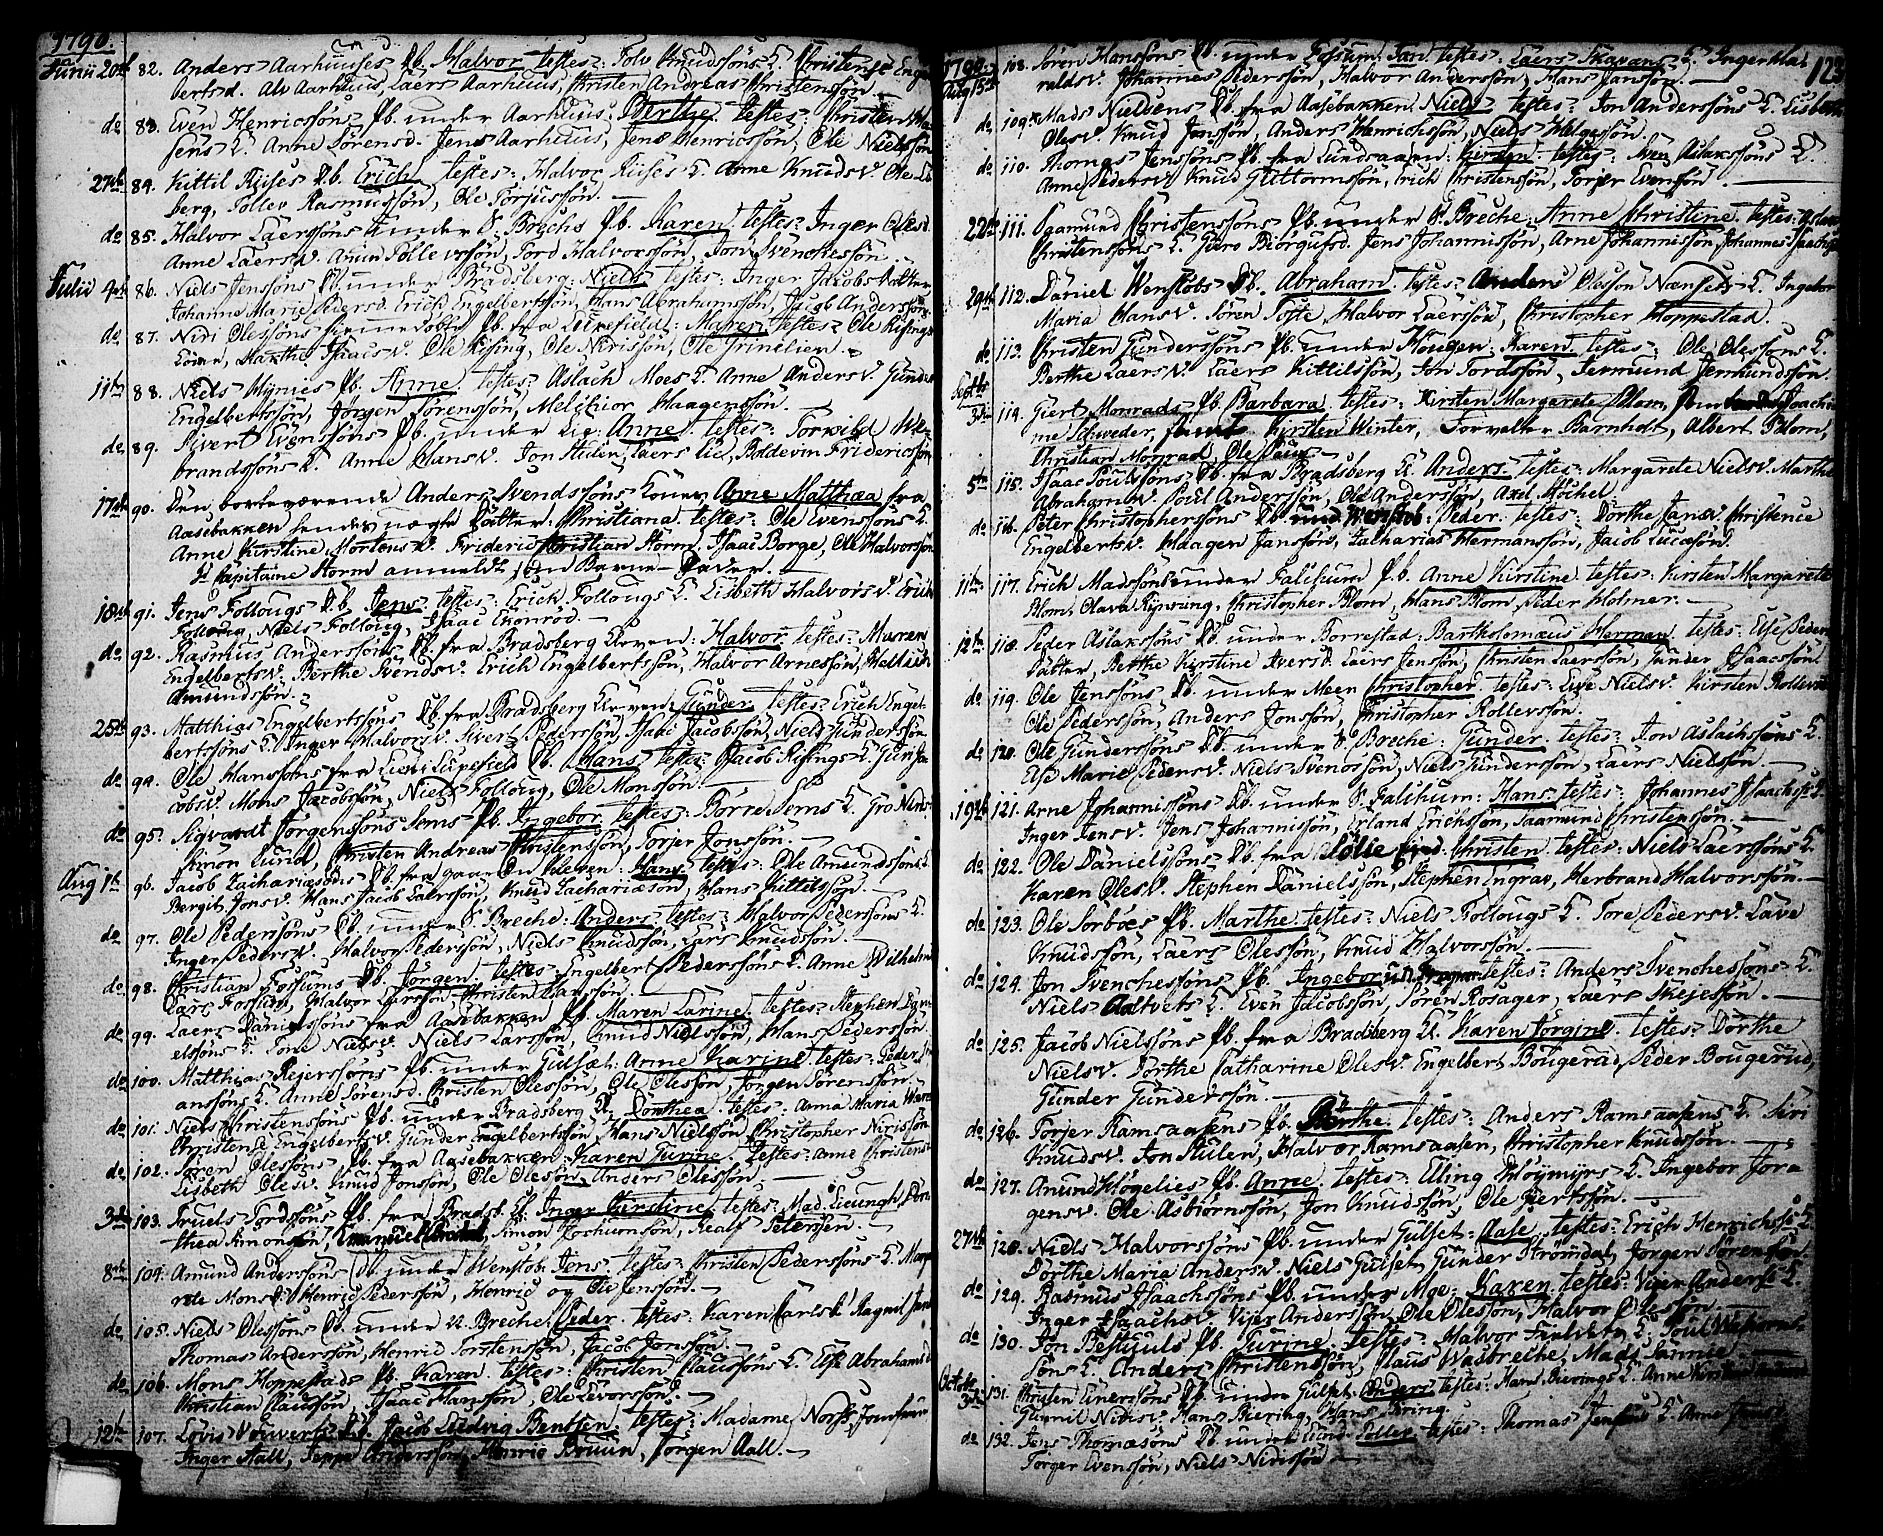 1790.
Junii 20de 82. Anders Aarhuuses Pb. Halvor testes: Tolv Knudssöns L. Christence Engel
bertsd. Alv Aarhuus, Laers Aarhuus, Christen Andreas Christenssön.
do 83. Even Henricssöns Pb. under Aarhuus: Berthe. testes: Christen Han
sens L. Anne Sörensd. Jens Aarhuus, Jens Henricssön, Ole Nielssön
27de 84. Kittil Riises Pb. Erich testes: Halvor Riises L. Anne Knudsv. Ole Li
berg, Tollev Rasmussön, Ole Torjussön.
do 85. Halvor Laerssöns under S: Brechs Pb. Karen testes: Inger Olesv.
Anne Laersv. Anun Tollevssön, Tord Halvorssön, Jon Svenchessön.
Julii 4de 86. Niels Jenssöns Pb. under Bradsberg: Niels testes: Inger Jacobs Datter
Johanne Marie Pedersd. Erich Engelbertssön, Hans Abrahamssön, Jacob Anderssön.
do 87. Niri Olessöns hjemmedöbte Pb. fra Luxefield: Maren testes: Ole Risings
Kone, Marthe Isaacsv. Ole Rising, Ole Nirissön, Ole Grinilien.
11te 88. Niels Myries Pb. Anne testes: Aslach Moes L. Anne Andersv. Gunder
Engelbertssön, Jörgen Sörenssön, Melchior Haagenssön.
do 89. Sivert Evenssöns Pb. under Lie: Anne testes: Torvild
brandssöns L. Anne Hansv. Jon Stulen, Laers Lie, Boldevin Fridericssön
17de 90. Den borteværende Anders Svendssöns Kone Anne Matthæa fra
Aasebakken hendes uægte Datter: Christiana. testes: Ole Evenssöns L.
Anne Kirstine Mortensv. Frideric Christian Storm, Isaac Borge, Ole Halvorssön
Hr Capitaine Storm anmeldt som Barne-Fader.
18de 91. Jens Follougs Pb. Jens testes: Erich Follougs L. Lisbeth Halvorsv. Erich
Folloug, Niels Folloug, Isaac Ekonröd.
do 92. Rasmus Anderssöns Pb. fra Bradsberg Kleven: Halvor testes: Maren
Engelbertsv. Berthe Svendsv. Erich Engelbertssön, Halvor Arnessön,
Amundssön.
25de 93. Matthias Engelbertssöns Pb. fra Bradsberg Kleven: Gunder. testes: Erich Engel
bertssöns L. Inger Halvorsv. Siver Pederssön, Isaac Jacobssön, Niels Gunderssön
do 94. Ole Hanssöns fra Luxefield Pb. Hans testes: Jacob Risings L. Gun Ja
cobsv. Mons Jacobssön, Niels Folloug, Ole Monssön.
do 95. Sigvardt Jörgenssöns Sems Pb. Ingebor testes: Börre Sems L. Gro Niels
Simon Lund, Christen Andreas Christenssön, Torjer Jonssön.
Aug 1te 96. Jacob Zachariassöns Pb. fra gaarden Kleven: Hans testes: Ole Amundssöns L.
Bergit Jonsv. Hans Jacob Laerssön, Knud Zachariæssön, Hans Kittilssön.
do 97. Ole Pederssöns Pb. under S. Breche: Anders testes: Halvor Pederssöns L.
Inger Pedersv. Halvor Pederssön, Niels Knudssön, Lars Knudssön.
do 98. Christian Fossums Pb. Jörgen testes: Engelbert Pederssöns L. Anne Wilhelm
Carl Fossum, Halvor Larssön, Christen Hanssön.
do 99. Laers Danielssöns fra Aasebakken Pb. Maren Larine testes: Stephen Dani
elssöns L. Tone Nielsv. Niels Larssön, Knud Nielssön, Hans Pederssön.
do 100. Matthias Rejerssöns Pb. under Gulset: Anne Karine testes: Peder Jo
anssöns L. Anne Sörensd. Christen Olessön, Ole Olessön, Jörgen Sörenssön.
do 101. Niels Christenssöns Pb. under Bradsberg Kl. Dorthea testes: Anna Maria
Christence Engelbertsv. Gunder Engelbertssön, Hans Nielssön, Christopher Nirissön
do 102. Sören Olessöns Pb. fra Aasebakken: Karen Jurine testes: Anne Christens
Lisbeth Olesv. Knud Jonssön, Ole Olessön, Anders Olessön.
3die 103. Truels Tordssöns Pb. fra Bradsb. Kl: Inger Kirstine testes: Mad. Liungh, Doro
thea Simonsön, Simon Jochumsön, Realf Petersen.
8de 104. Amund Anderssöns Pb. under Wenstob: Jens testes: Christen Pederssöns L. Marga
rete Monsd. Henric Pederssön, Henric og Ole Jenssön.
do 105. Niels Olessöns Pb. under N. Breche: Peder testes: Karen Carlsd. Ragnil Jens
Thomas Anderssön, Henric Torstenssön, Jacob Jonssön.
do 106. Mons Hoppestads Pb. Karen testes: Christen Claussöns L. Else Abrahamsd.
Christian Claussön, Isaac Hanssön, Ole Levorssön.
12te 107. Lovis Vouverts Pb. Jacob Ludvig Bentsen. testes: Madame Norss, Jomfrue
Inger Aall, Jeppe Anderssön, Henric Bruun, Jörgen Aall.
123
1790. 108. Sören Hanssöns Pb. under Fossum: Jan testes: Laers Skavans L. Inger Ha
Aug 15de raldsv. Johannes Pederssön, Halvor Anderssön, Hans Janssön.
do 109. Mads Nielsens Pb. fra Aasebakken: Niels testes: Jon Anderssöns L. Lisbeth
Olesv. Knud Jonssön, Anders Henrichssön, Niels Helgessön.
do 110. Thomas Jenssöns Pb. fra Lundsaaen: Kirsten testes: Aslakssöns L.
Anne Pedersv. Knud Guttormssön, Erich Christenssön, Torjer Evenssön.
22de 111. Ogmund Christenssöns Pb. under S: Breche: Anne Christine. testes: Aslak
Christenssöns L. Guro Biörgufsd. Jens Johannissön, Arne Johannissön, Johannes Isaachssön
29de 112. Daniel Wenstobs Pb. Abraham. testes: Anders Olessön Nænsets L. Ingebor
Maria Hansv. Sören Tofte, Halvor Laerssön, Christopher Hoppestad.
do 113. Christen Gunderssöns Pb. under Hougen: Karen testes: Ole Olessöns L.
Berthe Laersv. Laers Kittilssön, Jon Tordssön, Jermund Jermundssön.
Septbr
3die 114. Giert Monrads Pb. Barbara testes: Kirsten Margarete Blom, Joachi
me Schweder, Kirsten Winter, Forvalter Barnholt, Albert Blom,
Christian Monrad, Ole Paus.
5te 115. Isaac Poulssöns Pb. fra Bradsberg Kl. Anders testes: Margarete Nielsv. Marthe
Abrahamsv. Poul Anderssön, Ole Anderssön, Axel Möchel.
do 116. Peter Christopherssöns Pb. und. Wenstob: Peder. testes: Dorthe Jansv. Christence
Engelbertsv. Haagen Janssön, Zacharias Hermanssön, Jacob Lucæssön.
11te 117. Erich Madssöns under Falchum Pb. Anne Kirstine. testes: Kirsten Margarete
Blom, Olava Ripsrung, Christopher Blom, Hans Blom, Peder Holmer.
12te 118. Peder Aslakssöns Pb. under Borrestad: Bartholomæus Herman. testes: Else Peders
Datter, Berthe Kirstine Iversd. Laers Jenssön, Christen Laerssön, Gunder Isaacssön.
do 119. Ole Jenssöns Pb. under Meen: Christopher. testes: Else Nielsv. Kirsten Rollevsv.
Ole Pederssön, Anders Jonssön, Christopher Rollevssön.
do 120. Ole Gunderssöns Pb. under S: Breche: Gunder. testes: Jon Aslachssöns L.
Else Marie Pedersv. Niels Svenossön, Niels Gunderssön, Laers Nielssön.
19de 121. Arne Johannissöns Pb. under S. Falchum: Hans testes: Johannes Isaachssöns L.
Inger Jensv. Jens Johannissön, Erland Erichssön, Saamund Christenssön.
do 122. Ole Danielssöns Pb. fra Christen testes: Niels Laerssöns L.
Karen Olesv. Stephen Danielssön, Stephen Engrav, Herbrand Halvorssön.
do 123. Ole Sorböes Pb. Marthe testes: Niels Follougs L. Tore Pedersv. Lave
Knudssön, Laers Olessön, Knud Halvorssön.
do 124. Jon Svenchessöns Pb. Ingebor testes: Anders Svenchessöns L.
Niels Aaltvets L. Even Jacobssön, Sören Rosager, Laers Skejessön.
do 125. Jacob Nielssöns Pb. fra Bradsberg Kl. Karen Jörgine. testes: Dorthe
Nielsv. Dorthe Catharine Olesv. Engelbert Bougerud, Peder Bougerud,
Gunder Gunderssön.
do 126. Torjer Ramsaasens Pb. Berthe. testes: Anders Ramsaasens L. Siri
Knudsv. Jon Stulen, Halvor Ramsaasen, Christopher Knudssön.
do 127. Anund Högelies Pb. Anne testes: Elling Höymyrs L. Ingebor Jörg
gensv. Ole Asbiörnssön, Jon Knudssön, Ole Giertssön.
27de 128. Niels Halvorssöns Pb. under Gulset: Aase. testes: Erich Henrichssöns L.
Dorthe Maria Andersv. Niels Gulset, Gunder Strömdal, Jörgen Sörenssön.
do 129. Rasmus Isaachssöns Pb. under Moe: Karen testes: Vijer Anderssöns L.
Inger Isaachsv. Vijer Anderssön, Ole Olessön, Halvor Olessön.
do 130. Jon Bestuuls Pb. Jurine. testes: Halvor Fieldvets L. Poul
söns L. Anders Christenssön, Claus Wasbreche, Mads
Octobr
3die 131. Christen Einerssöns Pb. under Gulset: Anders testes: Hans Bierings L. Anne
Gunnil Nirisv. Hans Biering, Hans
do 132. Jens Thomæsöns Pb. under Lund: Tollev testes: Thomas Jenssöns L. Anne
Torger Evenssön, Niels Nirissön